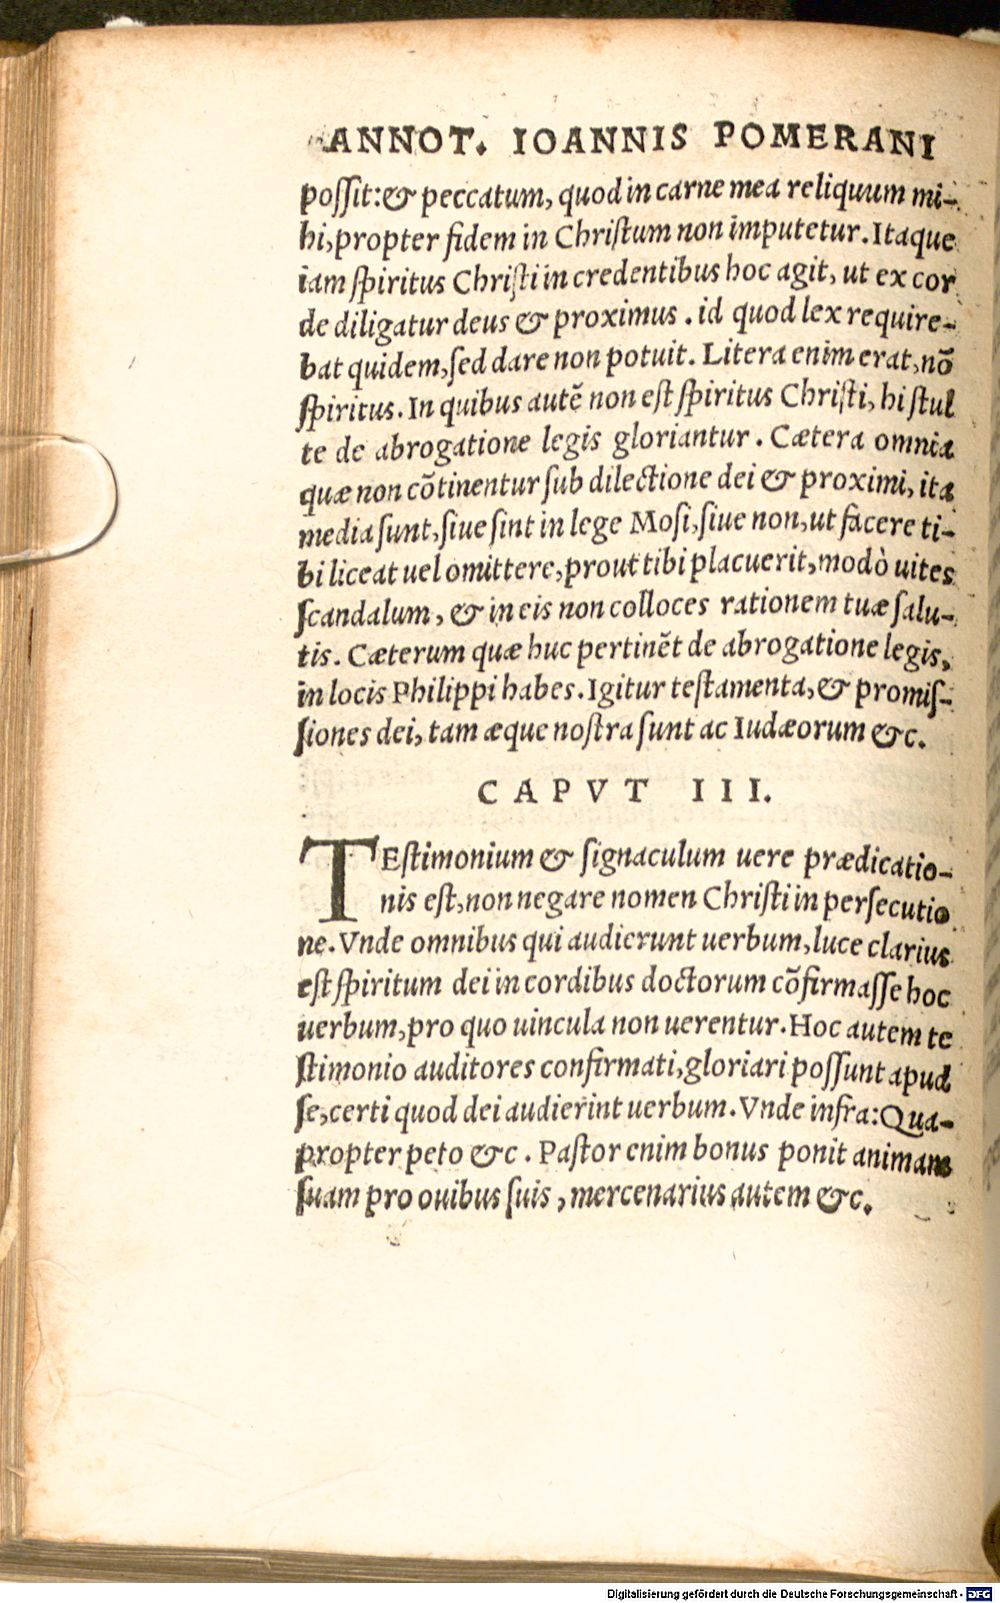 ANNOT. IOANNIS POMERANI
poſſit:& peccatum, quod in carne mea reliquum mi-
hi,propter fidem in Chriſtum non imputetur. Itaque
iam ſpiritus Chriſti in credentibus hoc agit, ut ex cor
de diligatur deus & proximus . id quod lex require-
bat quidem,ſed dare non potuit. Litera enim erat,nō
ſpiritus. In quibus autē non eſt ſpiritus Chriſti, hi ſtul
te de abrogatione legis gloriantur . Cætera omnia
quæ non cōtinentur ſub dilectione dei & proximi, ita
media ſunt,ſiue ſint in lege Moſi,ſiue non,ut facere ti-
bi liceat uel omittere,prout tibi placuerit,modò uites
ſcandalum, & in eis non colloces rationem tuæ ſalu-
tis. Cæterum quæ huc pertinēt de abrogatione legis,
in locis Philippi habes. Igitur teſtamenta,& promiſ-
ſiones dei, tam æque noſtra ſunt ac Iudæorum &c.
CAPVT III.
TEſtimonium & ſignaculum uere prædicatio-
nis eſt,non negare nomen Chriſti in perſecutio
ne. Vnde omnibus qui audierunt uerbum,luce clarius
eſt ſpiritum dei in cordibus doctorum cōfirmaſſe hoc
uerbum,pro quo uincula non uerentur. Hoc autem te
ſtimonio auditores confirmati,gloriari poſſunt apud
ſe,certi quod dei audierint uerbum. Vnde infra: Qua-
propter peto &c . Paſtor enim bonus ponit animam
ſuam pro ouibus ſuis , mercenarius autem &c.
Digitalisierung gefördert durch die Deutsche Forschungsgemeinschaft - DFG